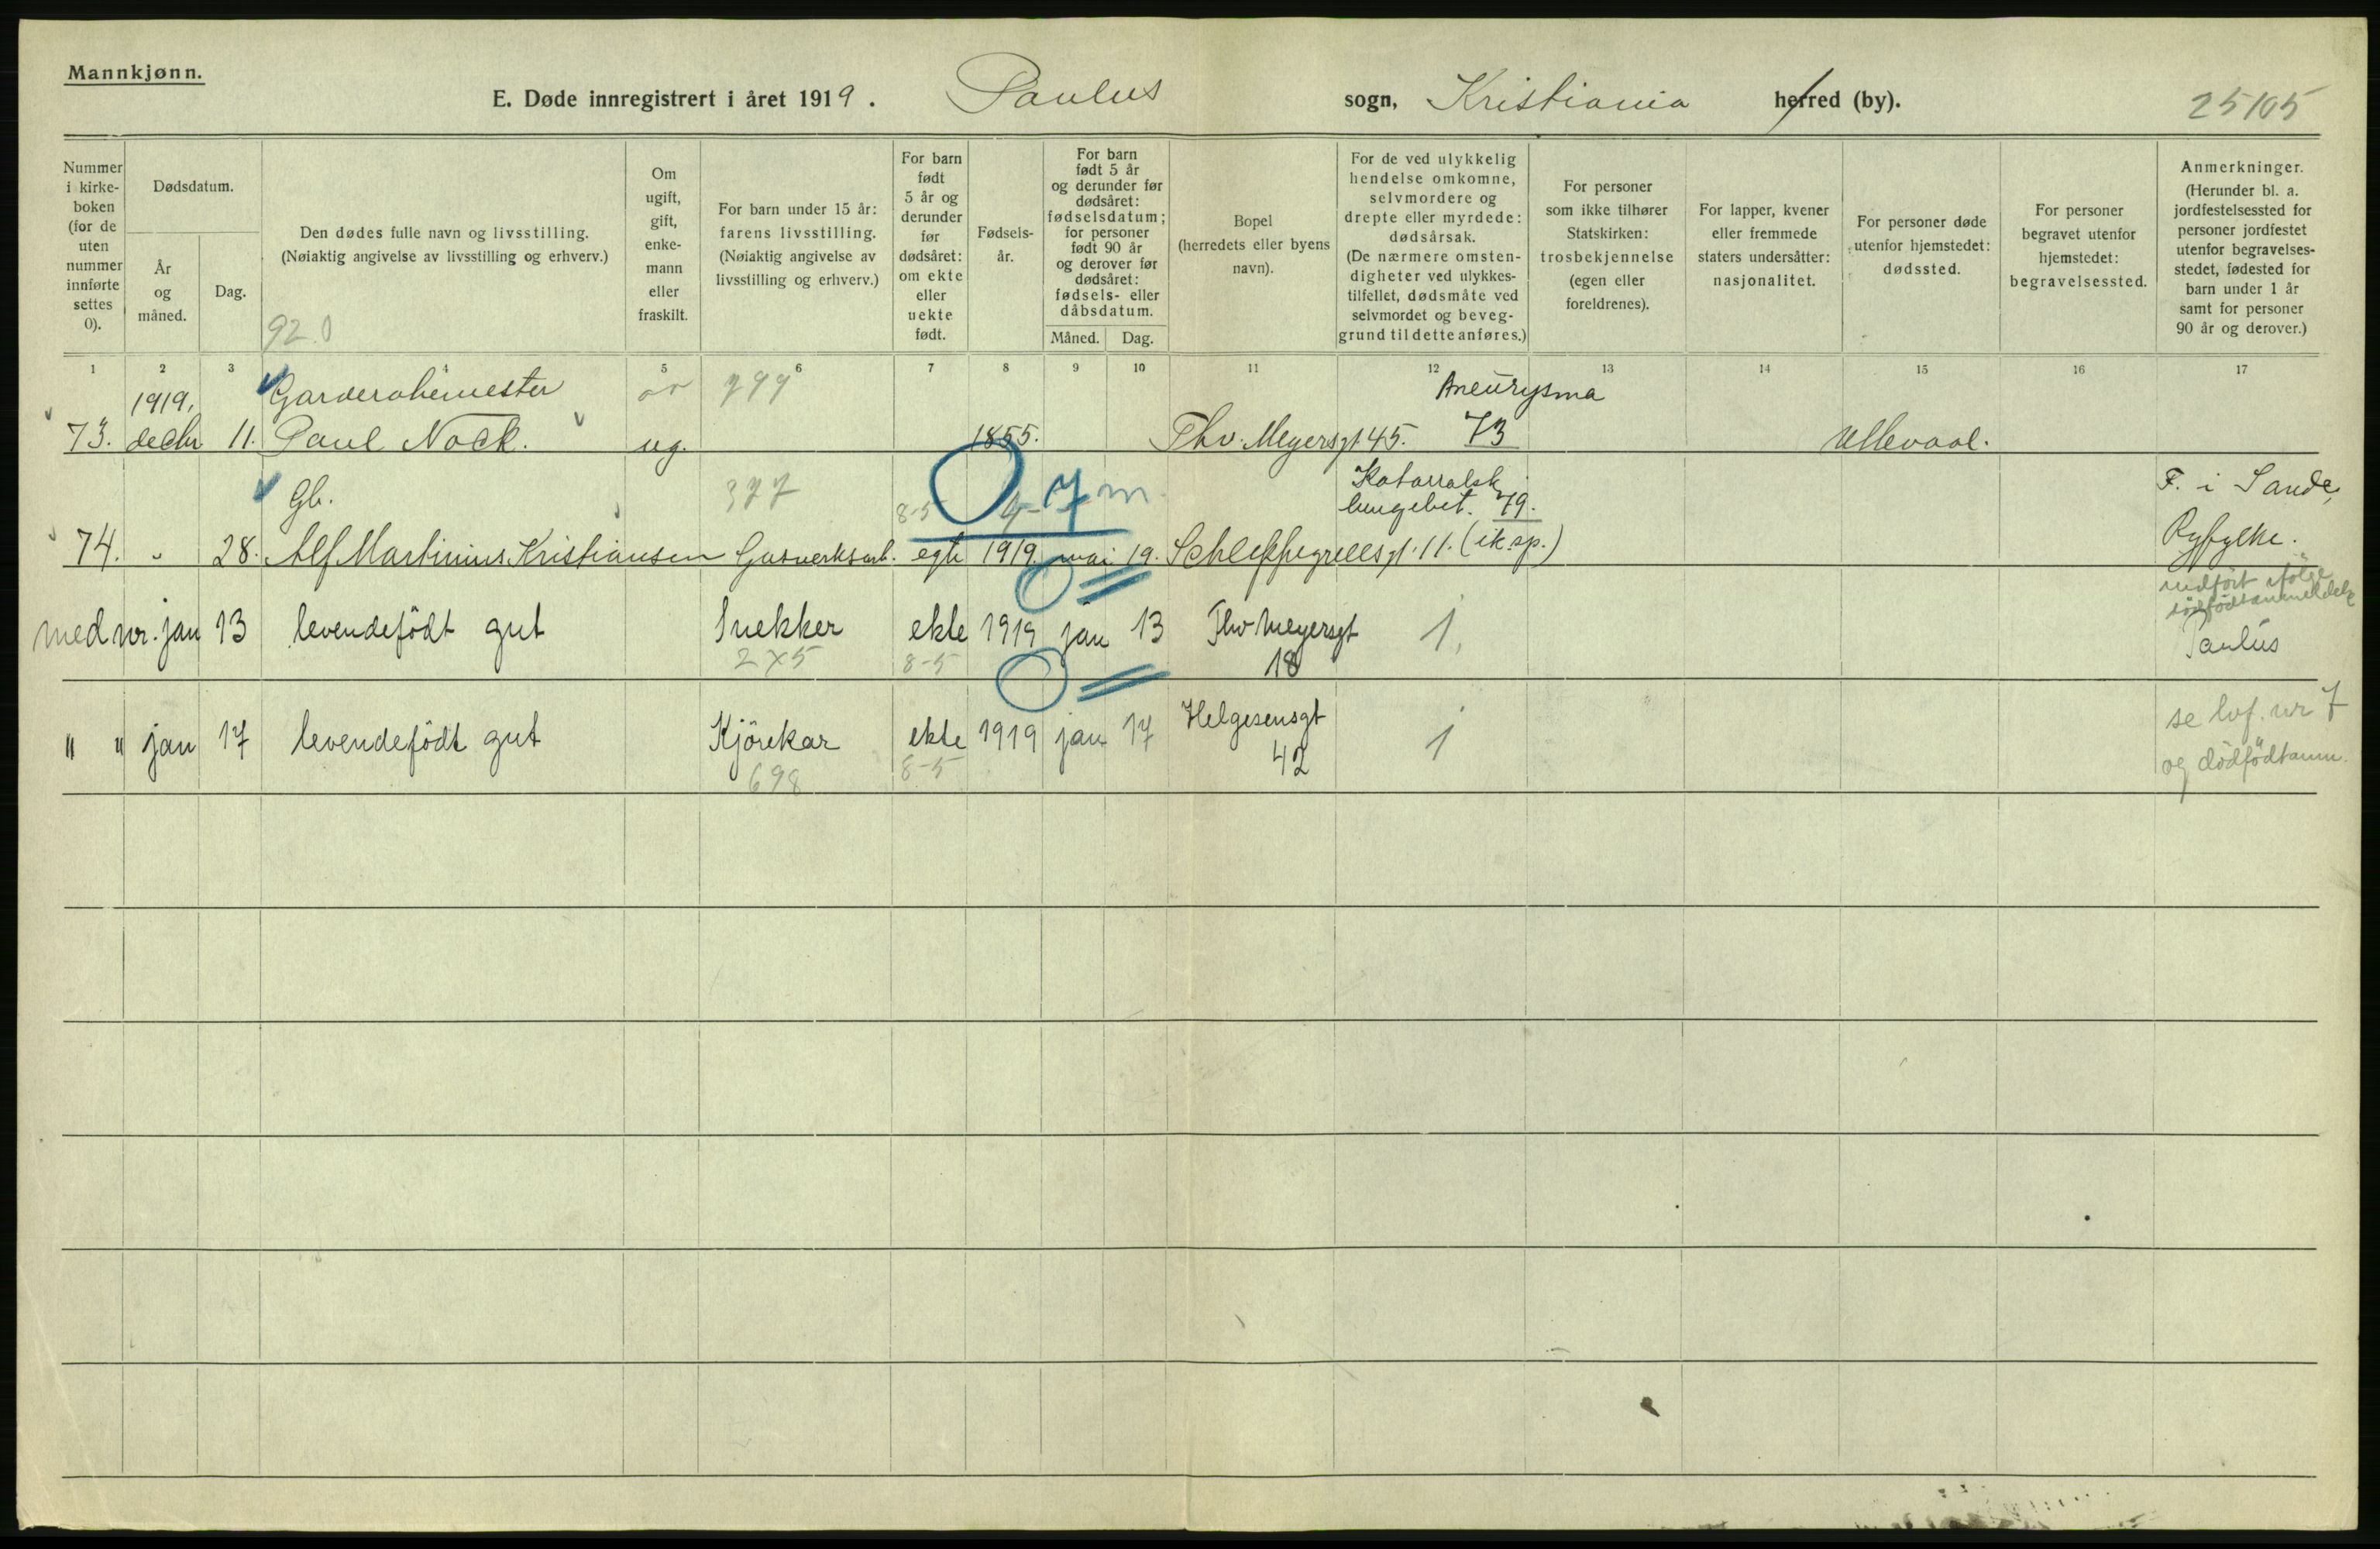 Mannkjønn.
E. Døde innregistrert i året 1919. Paulus sogn, Kristiania herred (by). 25105
Nummer i kirke-boken (for de uten nummer innførte settes 0).
Dødsdatum.
År og måned.
Dag.
Den dødes fulle navn og livsstilling.
(Nøiaktig angivelse av livsstilling og erhverv.)
92.0
Om ugift, gift, enke-mann eller fraskilt.
For barn under 15 år: farens livsstilling.
(Nøiaktig angivelse av livsstilling og erhverv.)
For barn født 5 år og derunder før dødsåret: om ekte eller uekte født.
Fødsels-år.
For barn født 5 år og derunder før dødsåret: fødselsdatum; for personer født 90 år og derover før dødsåret: fødsels- eller dåbsdatum.
Måned. Dag.
Bopel (herredets eller byens navn).
For de ved ulykkelig hendelse omkomne, selvmordere og drepte eller myrdede: dødsårsak.
(De nærmere omsten-digheter ved ulykkes-tilfellet, dødsmåte ved selvmordet og beveg-grund til dette anføres.)
For personer som ikke tilhører Statskirken: trosbekjennelse (egen eller foreldrenes).
For lapper, kvener eller fremmede staters undersåtter: nasjonalitet.
For personer døde utenfor hjemstedet: dødssted.
For personer begravet utenfor hjemstedet: begravelsessted.
Anmerkninger.
(Herunder bl. a. jordfestelsessted for personer jordfestet utenfor begravelses-stedet, fødested for barn under 1 år samt for personer 90 år og derover.)
1 2 3 4 5 6 7 8 9 10 11 12 13 14 15 16 17
1919, Garderobemester 299 Aneurysma
73. decbr 11. Paul Nock. ug. 1855. Thv. Meyersgt 45. 73 Ullevaal.
Gb. 377 8-5 4-7 m Katarralsk F. i Sande,
lungebet. 79.
74. " 28. Alf Martinius Kristiansen Gasverksarb. egte 1919 mai 19. Schleppegrellsgt. 11. (ik. sp.) Ryfylke.
indført ifølge
dødfødtanmeldelse
med nr. jan 13 levendefødt gut Snekker ekte 1919 jan 13 Thv Meyersgt 1, Paulus
2x5 8-5 18
" " jan 17 levendefødt gut Kjørekar ekte 1919 jan 17 Helgesensgt 1 se lvf. nr 7
698 8-5 42 og dødfødtanm.